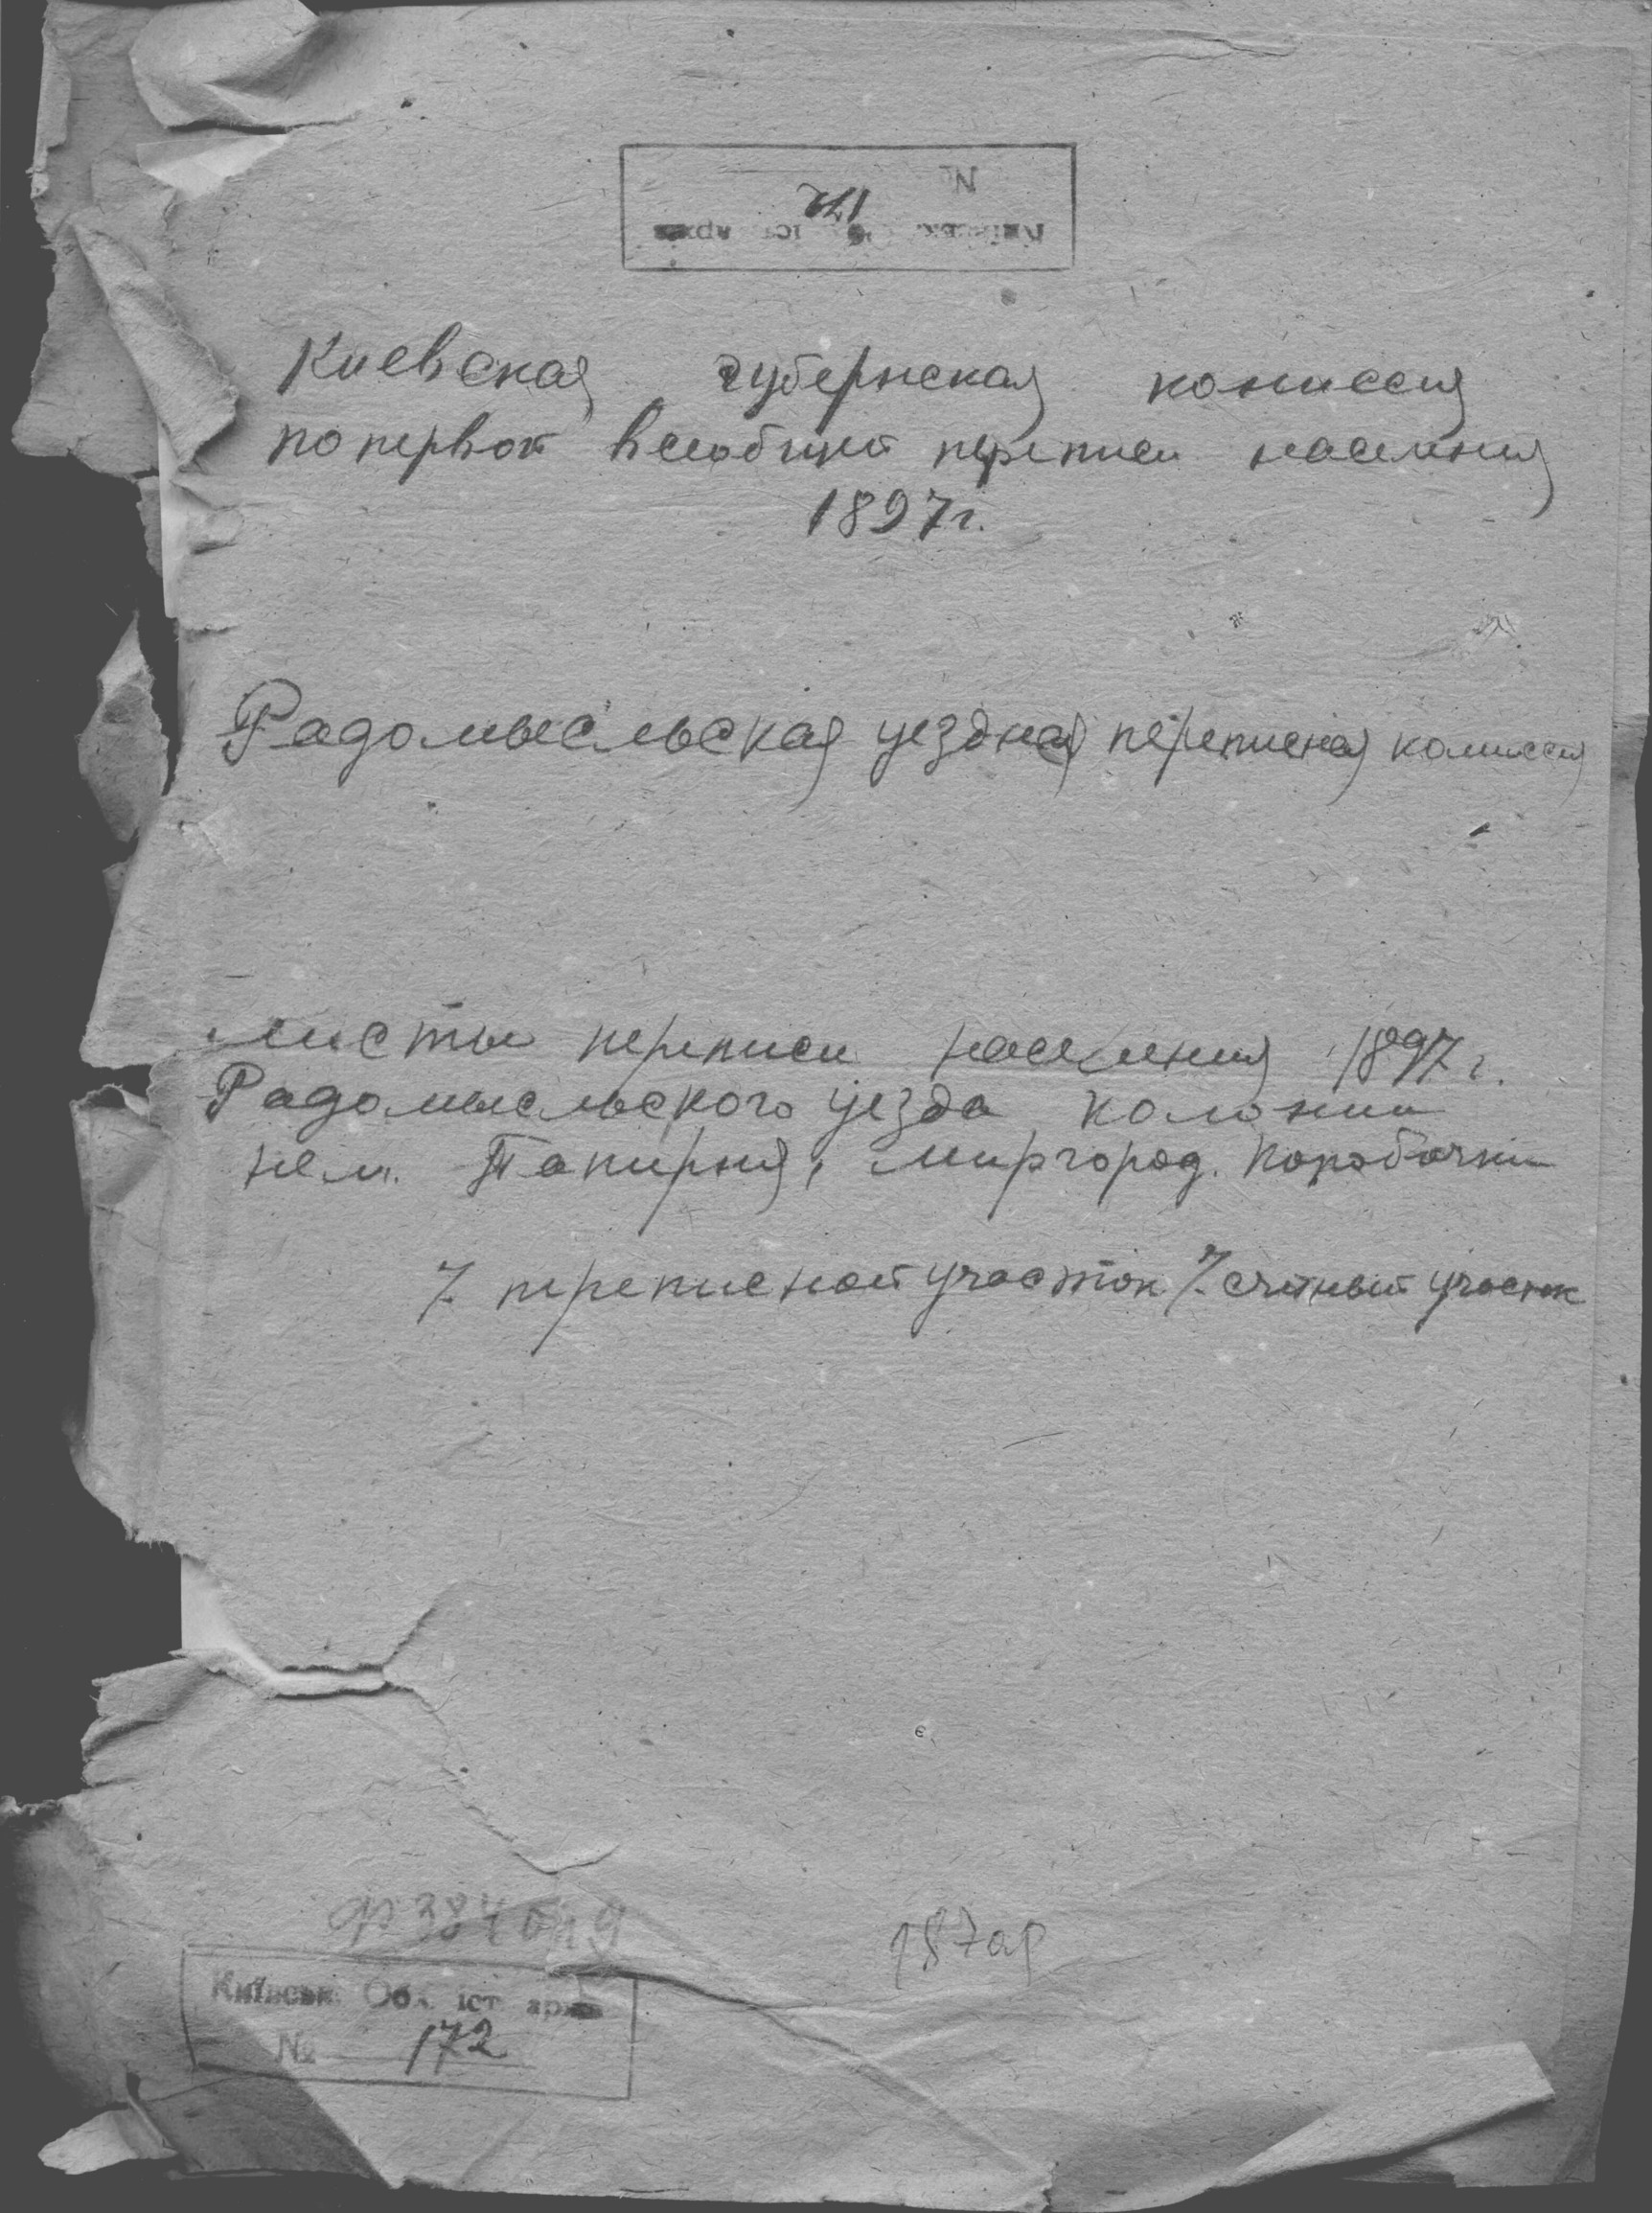 №
172
Київськ. Обл. іст. арх
Киевская губернская комиссия
по первой всеобщей переписи населения
1897 г.
Радомысльская уездная переписная комиссия
Листы переписи населения 1897 г.
Радомысльского уезда колонии
нем. Папирня, Миргород. Коробочки
7 переписной участок 7 счетный участок
ф 384 оп 9
187 ар
Київськ. Обл. іст. арх
№ 172